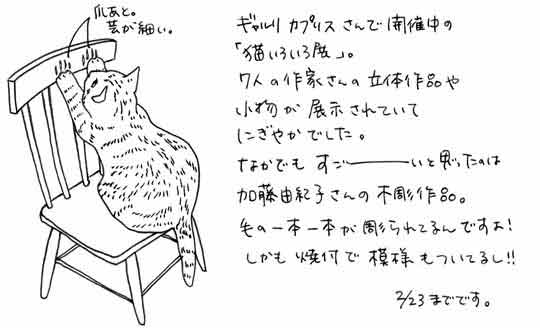 爪あと。
芸が細い。
ギャルリ カプリス さんで 開催中の
「猫いろいろ展」。
7人の作家さんの 立体作品や
小物が 展示されていて
にぎやかでした。
なかでも すごーーいと思ったのは
加藤由紀子さんの 木彫作品。
毛の一本一本が 彫られてるんですよ!
しかも 焼付で 模様もついてるし!!
2/23までです。